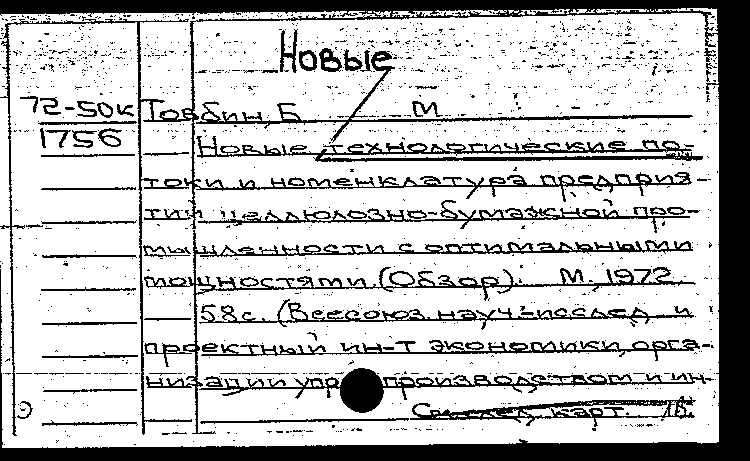 Новые
72-50к Товбин, Б М
1756 Новые технологические по-
токи и номенклатура предприя-
тий целлюлозно-бумажной про-
мышленности с оптимальными
мощностями. (Обзор). М., 1972.
58с. (Всесоюз. науч.-исслед. и
проектный ин-т экономики, орга-
низации упр производством и ин-
См. след. карт.